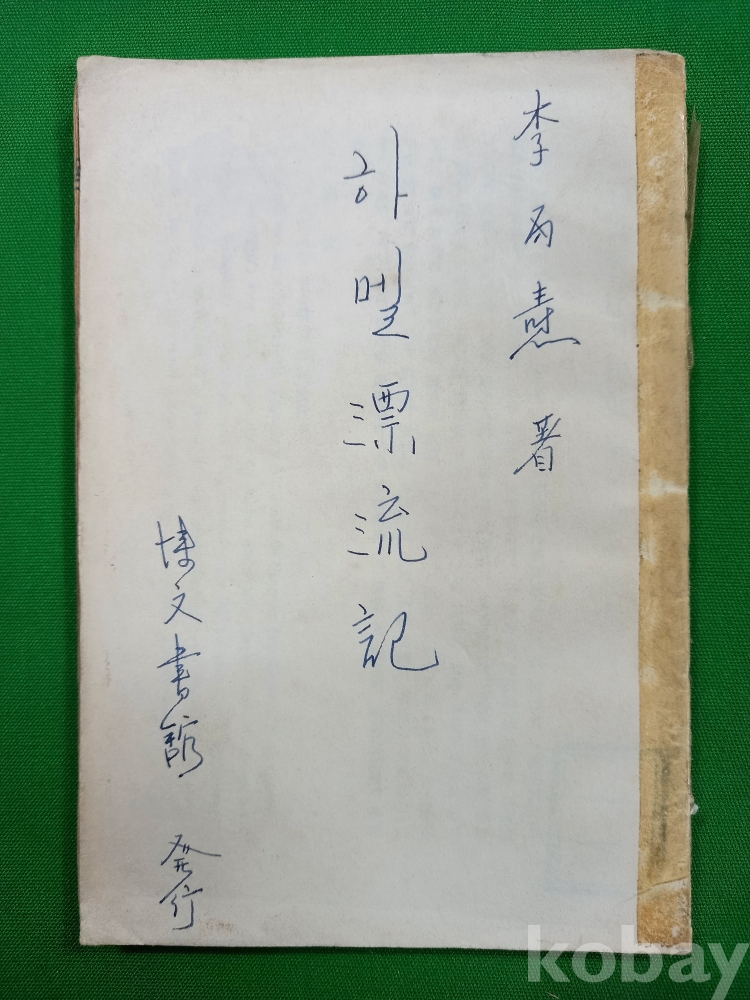 李丙燾 著
하멜漂流記
博文書館 発行
kobay